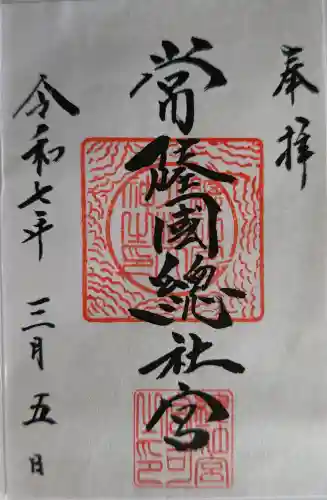 奉拝
常陸國總社宮
令和七年 三月五日